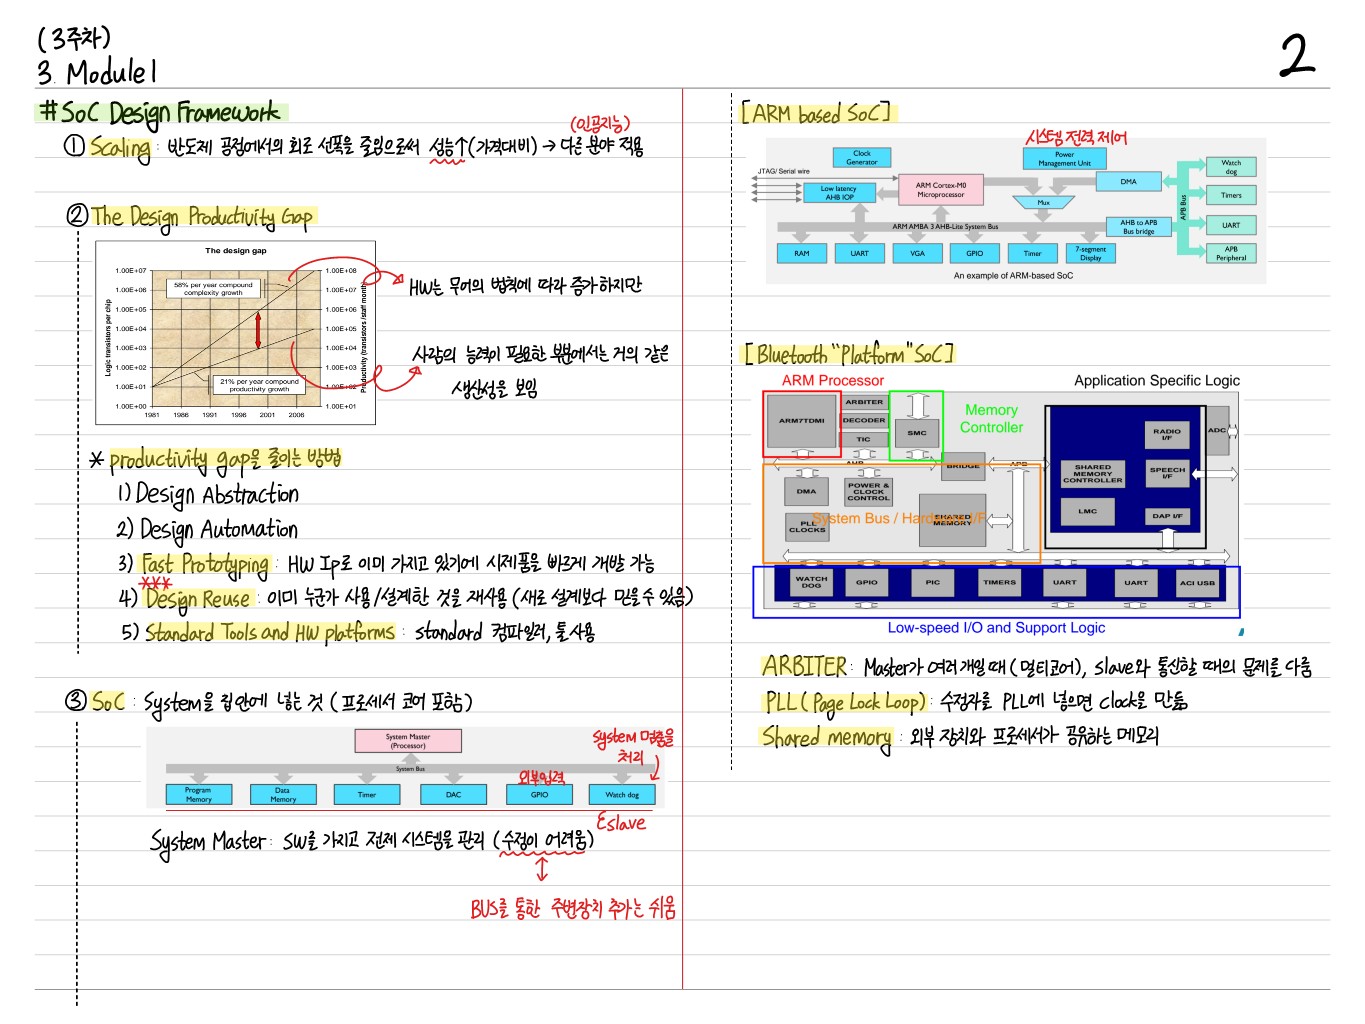 (3주차)
3. Module1
2
#SoC Design Framework
(인공지능)
① Scaling : 반도체 공정에서의 회로 선폭을 줄임으로써 성능↑(가격대비) → 다른 분야 적용
② The Design Productivity Gap
The design gap
Logic transistors per chip
1.00E+07
1.00E+06
1.00E+05
1.00E+04
1.00E+03
1.00E+02
1.00E+01
1.00E+00
58% per year compound
complexity growth
21% per year compound
productivity growth
1.00E+08
1.00E+07
1.00E+06
1.00E+05
1.00E+04
1.00E+03
1.00E+02
1.00E+01
Productivity (transistors /staff month)
1981 1986 1991 1996 2001 2006
HW는 무어의 법칙에 따라 증가하지만
사람의 능력이 필요한 부분에서는 거의 같은
생산성을 보임
* productivity gap을 줄이는 방법
1) Design Abstraction
2) Design Automation
3) Fast Prototyping : HW Ip로 이미 가지고 있기에 시제품을 빠르게 개발 가능
***
4) Design Reuse : 이미 누군가 사용/설계한 것을 재사용 (새로 설계보다 믿을수 있음)
5) Standard Tools and HW platforms : standard 컴파일러, 툴사용
③ SoC : System을 칩안에 넣는 것 (프로세서 코어 포함)
System Master
(Processor)
System 멈춤을
처리
System Bus
외부입력
Program
Memory
Data
Memory
Timer
DAC
GPIO
Watch dog
Eslave
System Master : SW를 가지고 전체 시스템을 관리 (수정이 어려움)
BUS를 통한 주변장치 추가는 쉬움
[ARM based SoC]
시스템 전력 제어
Clock
Generator
Power
Management Unit
Watch
dog
JTAG/ Serial wire
Low latency
AHB IOP
ARM Cortex-M0
Microprocessor
DMA
Mux
Timers
APB Bus
ARM AMBA 3 AHB-Lite System Bus
AHB to APB
Bus bridge
UART
RAM
UART
VGA
GPIO
Timer
7-segment
Display
APB
Peripheral
An example of ARM-based SoC
[Bluetooth "Platform" SoC]
ARM Processor
Application Specific Logic
ARM7TDMI
ARBITER
DECODER
TIC
SMC
Memory
Controller
RADIO
I/F
ADC
AHB
BRIDGE
APB
SHARED
MEMORY
CONTROLLER
SPEECH
I/F
DMA
POWER &
CLOCK
CONTROL
LMC
DAP I/F
PLL
CLOCKS
SHARED
MEMORY
System Bus / Hardware I/F
WATCH
DOG
GPIO
PIC
TIMERS
UART
UART
ACI USB
Low-speed I/O and Support Logic
ARBITER : Master가 여러개일 때 (멀티코어), slave와 통신할 때의 문제를 다룸
PLL (Page Lock Loop) : 수정자를 PLL에 넣으면 clock을 만듦
Shared memory : 외부 장치와 프로세서가 공유하는 메모리